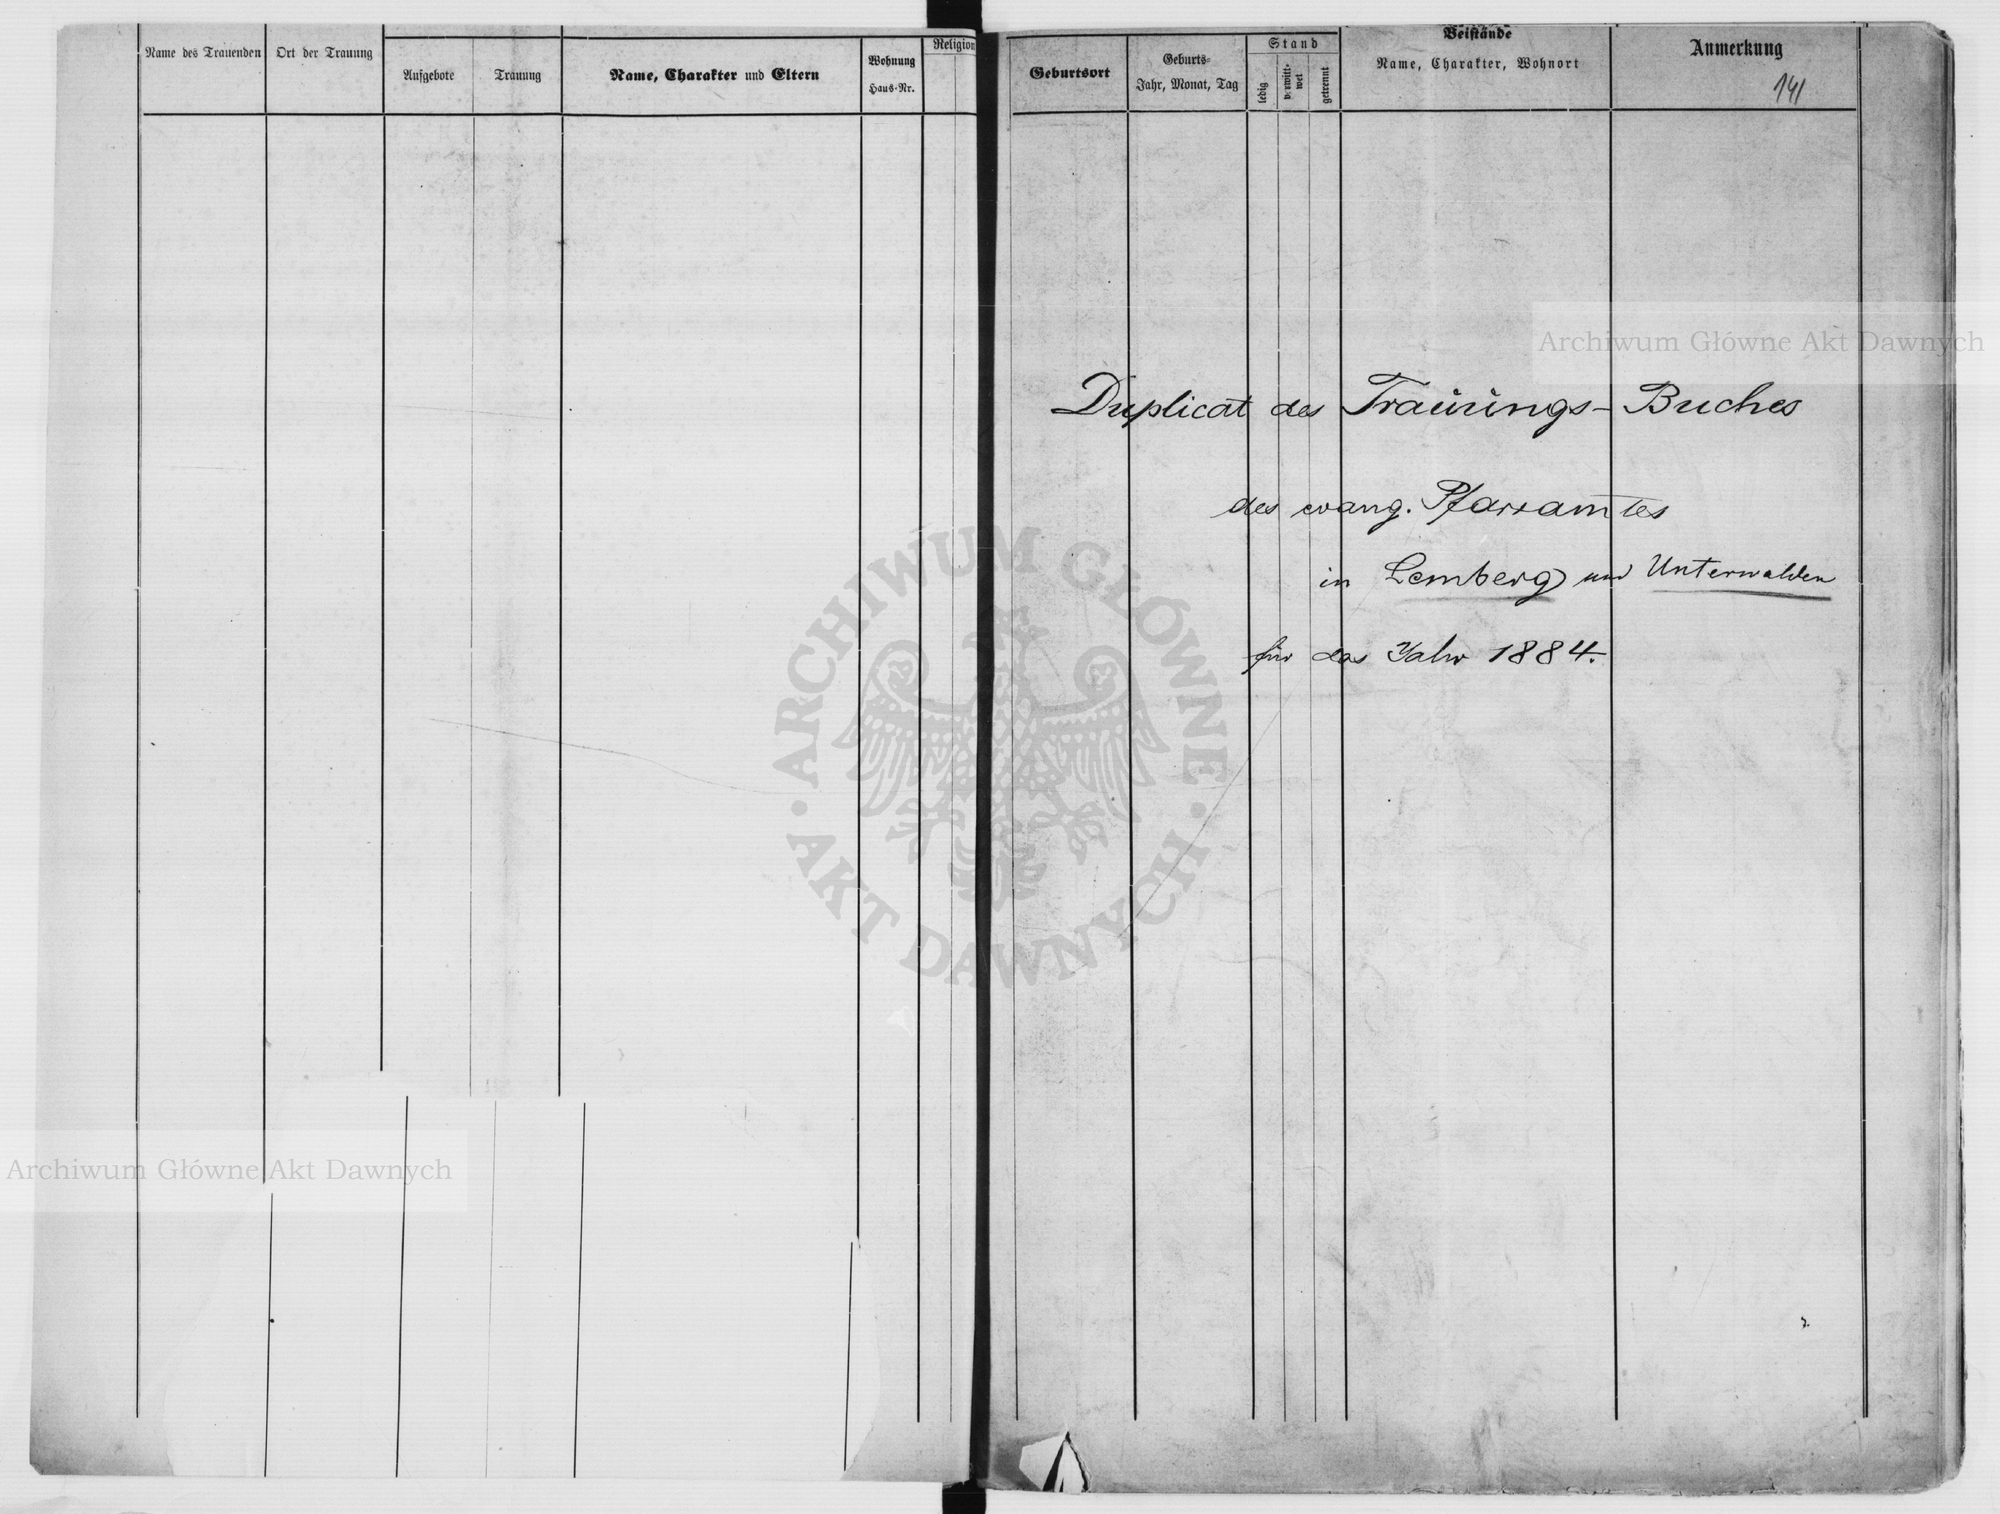 Name des Trauenden
Ort der Trauung
Aufgebote
Trauung
Name, Charakter und Eltern
Wohnung
Haus-Nr.
Religion
Geburtsort
Geburts-
Jahr, Monat, Tag
Stand
ledig
verwitt-
wet
getrennt
Beistände
Name, Charakter, Wohnort
Anmerkung
141
Duplicat des Trauungs-Buches
des evang. Pfarramtes
in Lemberg und Unterwalden
für das Jahr 1884.
Archiwum Główne Akt Dawnych
ARCHIWUM GŁÓWNE
AKT DAWNYCH
Archiwum Główne Akt Dawnych